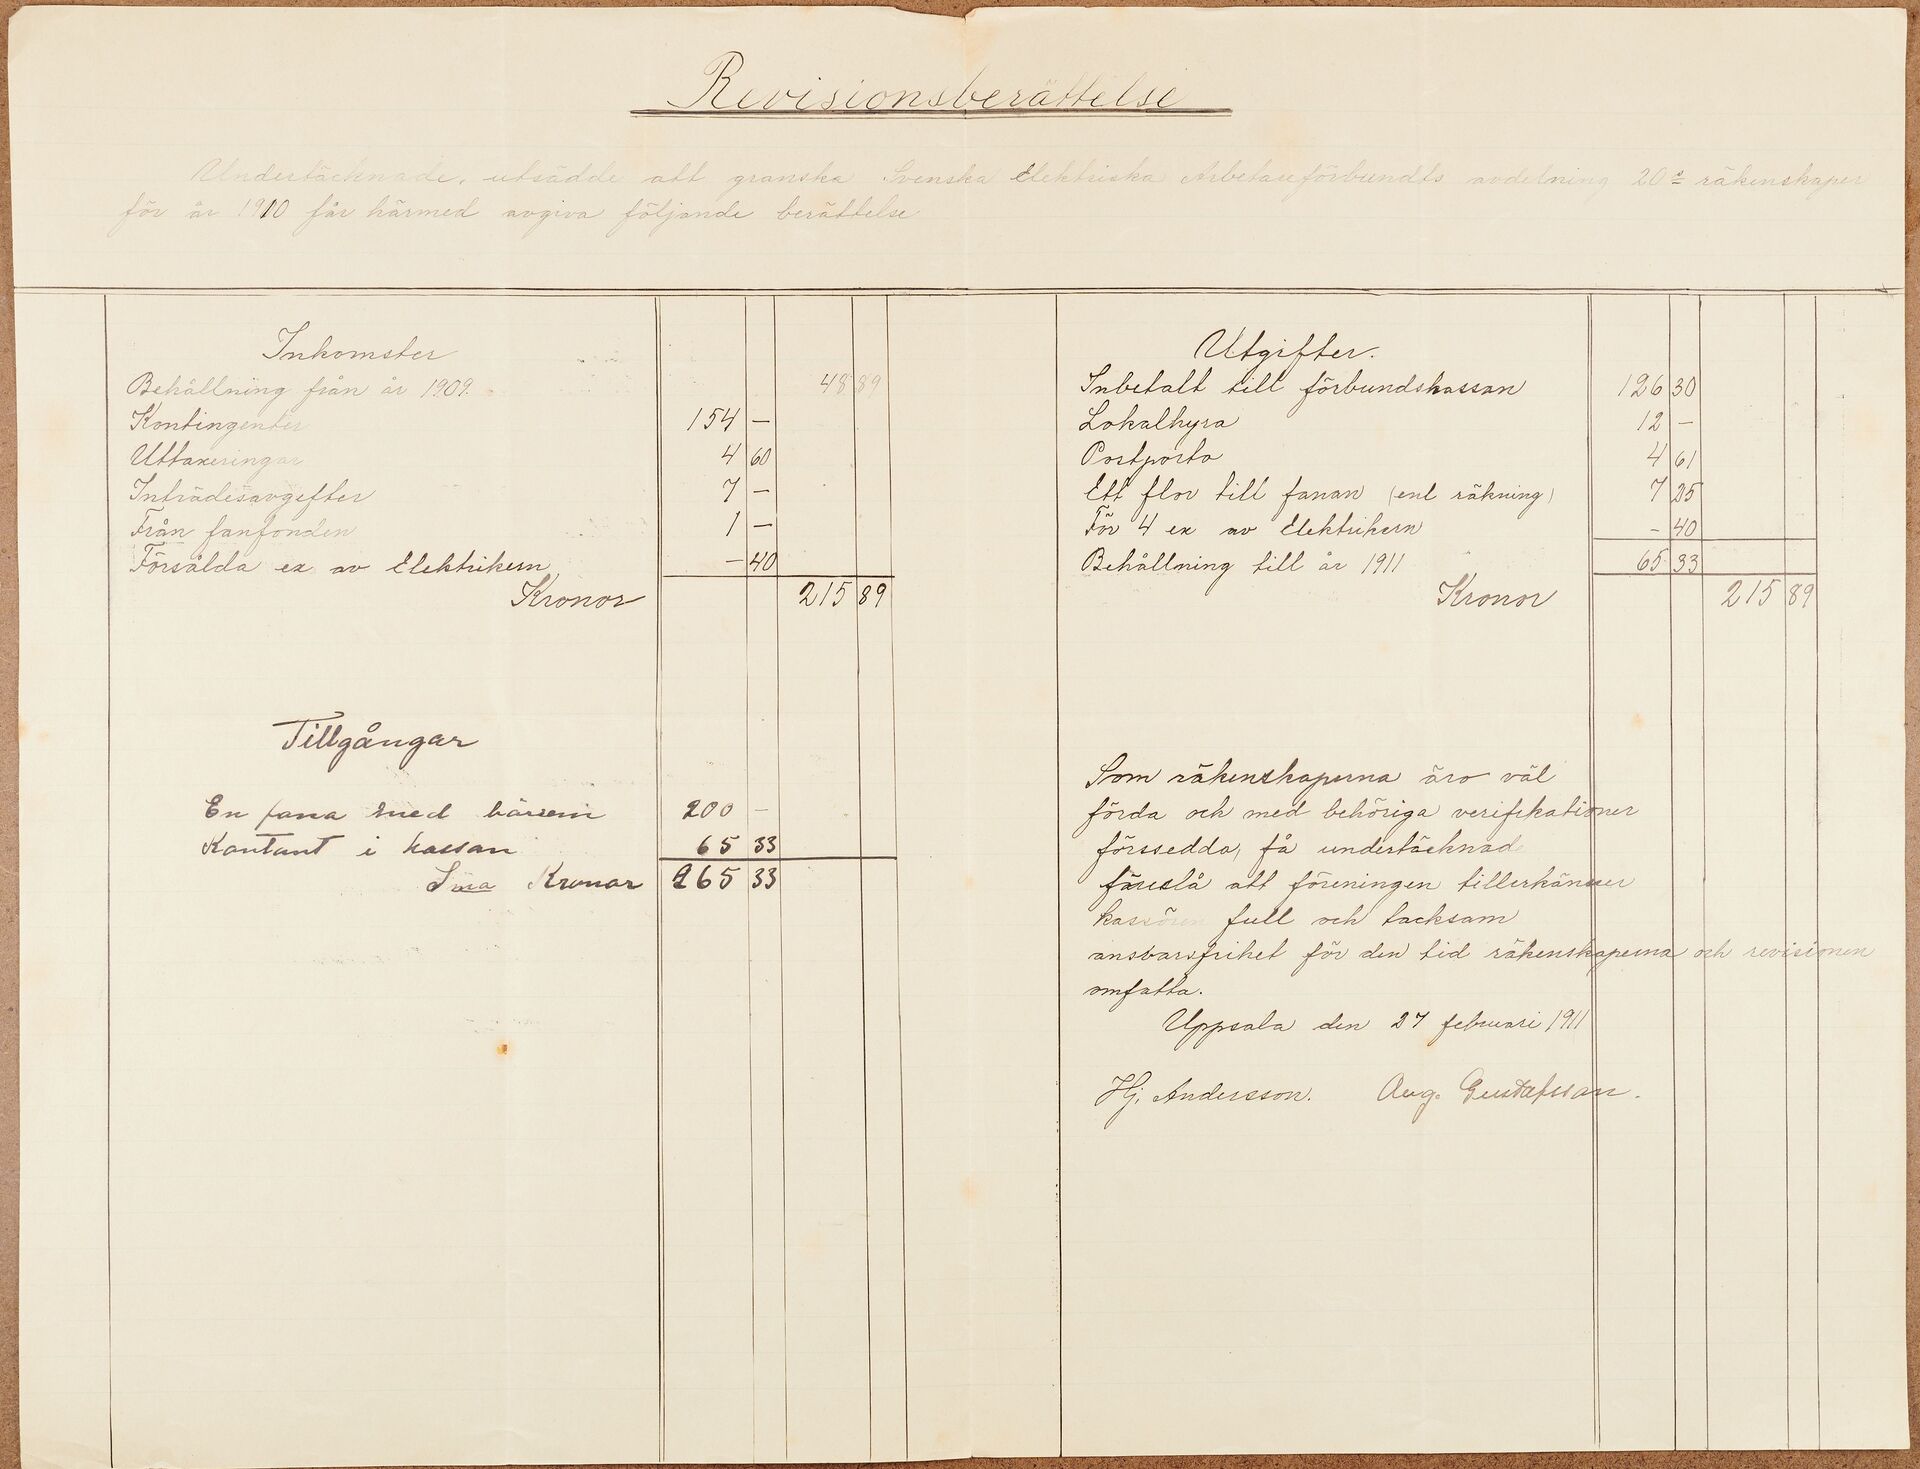 Revisionsberättelse
Undertäcknade, utsädde att granska Svenska Elektriska Arbetareförbundts avdelning 20:s räkenskaper
för år 1910 får härmed avgiva följande berättelse
Inkomster
Behållning från år 1909. 48 89
Kontingenter 154 —
Uttaxeringar 4 60
Inträdesavgifter 7 —
Från fanfonden 1 —
Försålda ex av Elektrikern — 40
Kronor 215 89
Tillgångar
En fana med bärrem 200 —
Kontant i kassan 65 33
Sma Kronor 265 33
Utgifter.
Inbetalt till förbundskassan 126 30
Lokalhyra 12 —
Postporto 4 61
Ett flor till fanan (enl räkning) 7 25
För 4 ex av Elektrikern - 40
Behållning till år 1911 65 33
Kronor 215 89
Som räkenskaperna äro väl
förda och med behöriga verifikationer
förssedda, få undertäcknad
föreslå att föreningen tillerkänner
kassören full och tacksam
ansvarsfrihet för den tid räkenskaperna och revisionen
omfatta.
Uppsala den 27 februari 1911
Hj. Andersson. Aug. Gustafsson.